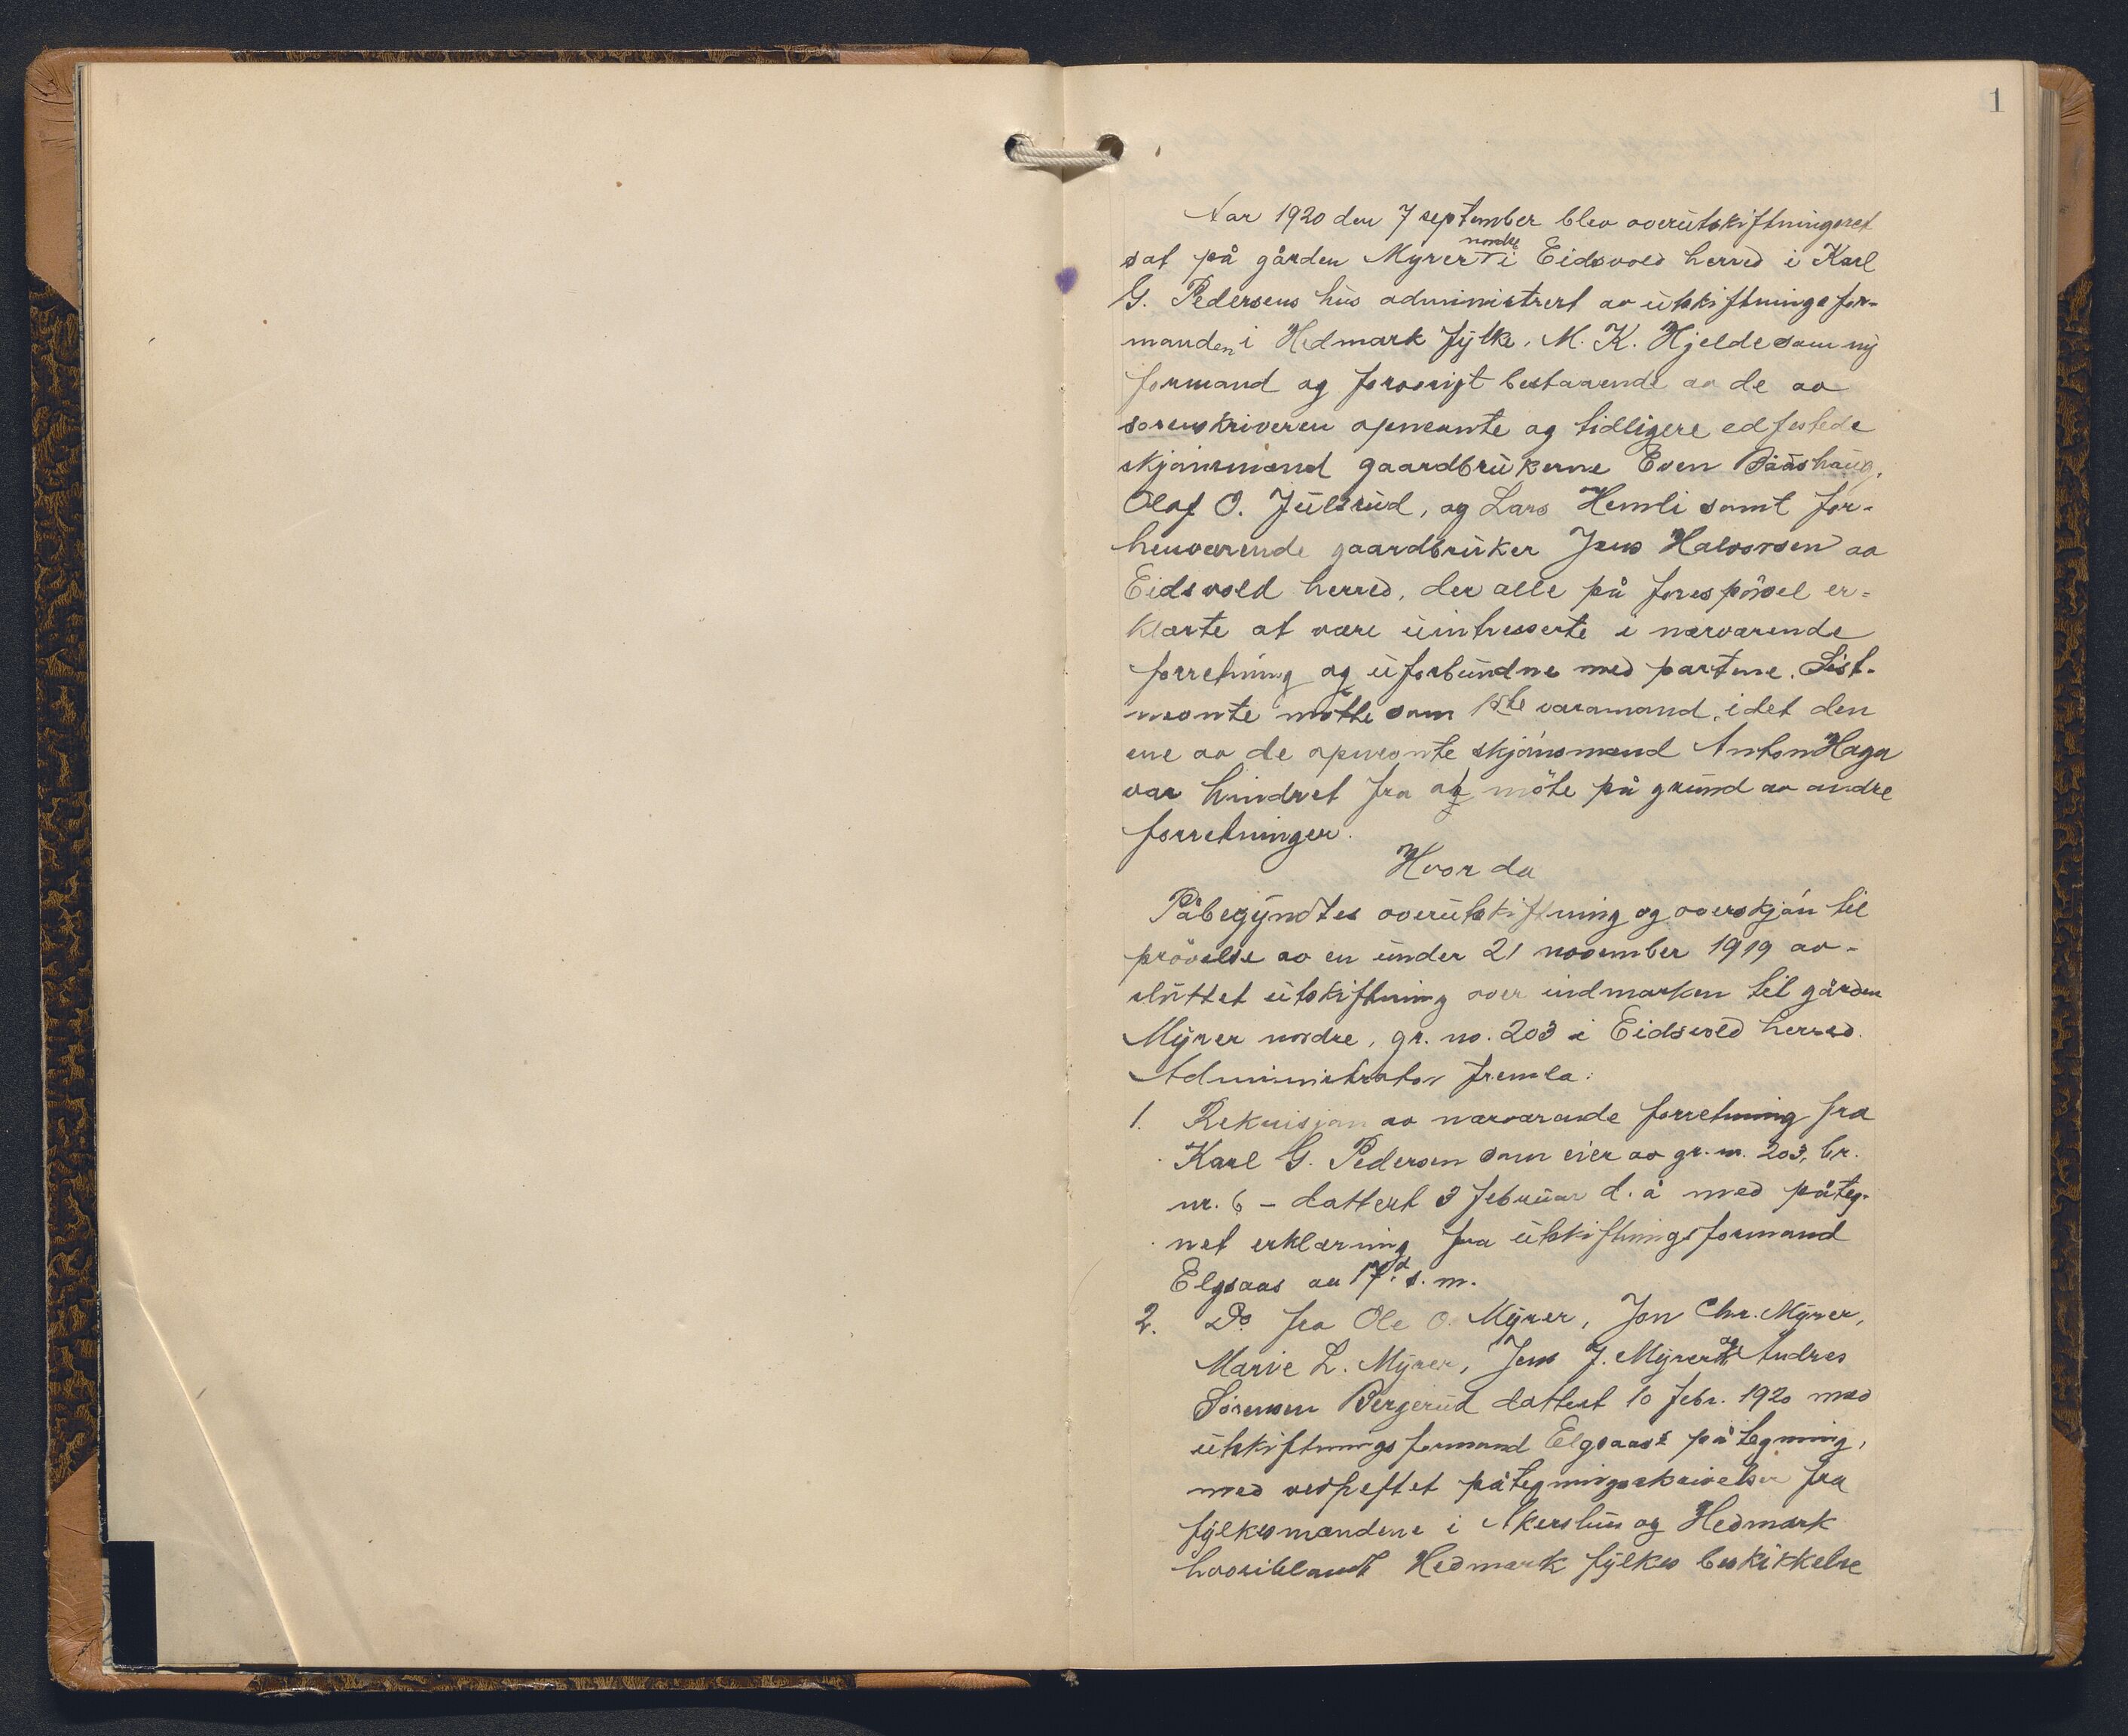 1
Aar 1920 den 7 september blev overutskiftningsret
sat på gården Myrer nordre i Eidsvold herred i Karl
G. Pedersens hus administrert av utskiftningsfor-
manden i Hedmark fylke, M. K. Hjelde som ny
formand og forøvrigt bestaaende av de av
sorenskriveren opnevnte og tidligere edfestede
skjønsmænd gaardbrukerne Even
Olaf O. Julsrud, og Lars Hemli samt for-
henværende gaardbruker Jens Halvorsen av
Eidsvold herred, der alle på forespørsel er-
klærte at være uintresserte i nærværende
forretning og uforbundne med partene. Sist-
nevnte møtte som 1ste varamand, idet den
ene av de opnevnte skjønsmænd Anton Haga
var hindret fra at møte på grund av andre
forretninger.
Hvor da
Påbegyndtes overutskiftning og overskjøn til
prøvelse av en under 21 november 1919 av-
sluttet utskiftning over indmarken til gården
Myrer nordre, gr. no. 203 i Eidsvold herred.
Administrator fremla:
1. Rekvisjon av nærværende forretning fra
Karl G. Pedersen som eier av gr. nr. 203, br.
nr. 6 – dattert 3 februar d. å med påteg-
net erklæring fra utskiftningsformand
Elgsaas av 17. s. m.
2. Do fra Ole O. Myrer, Jon Chr. Myrer,
Marie L. Myrer, Jens J. Myrer og Andres
Sørensen Bergerud dattert 10 febr. 1920 med
utskiftningsformand Elgsaas's påtegning,
med vedheftet påtegningsskrivelser fra
fylkesmændene i Akershus og Hedmark
hvoriblandt Hedmark fylkes beskikkelse